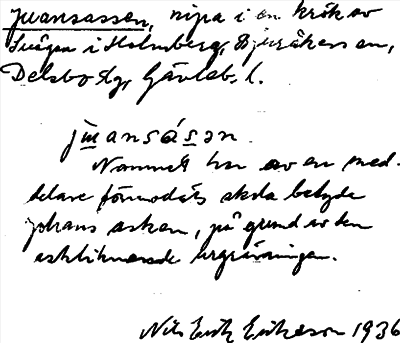 Juansassen, nipa i en krök av
Svågan i Holmberg, Bjuråkers sn,
Delsbo tg, Gävleb. l.
juansásən.
Namnet har av en med-
delare förmodats skola betyda
Johans asken, på grund av den
askliknande urgrävningen.
Nils Erik Erikson 1936